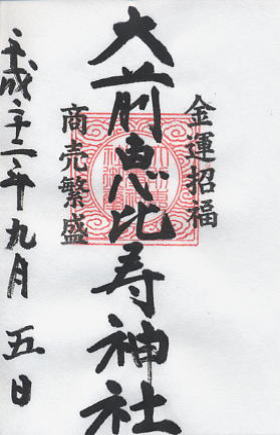 金運招福
大前恵比寿神社
商売繁盛
平成二十二年九月五日